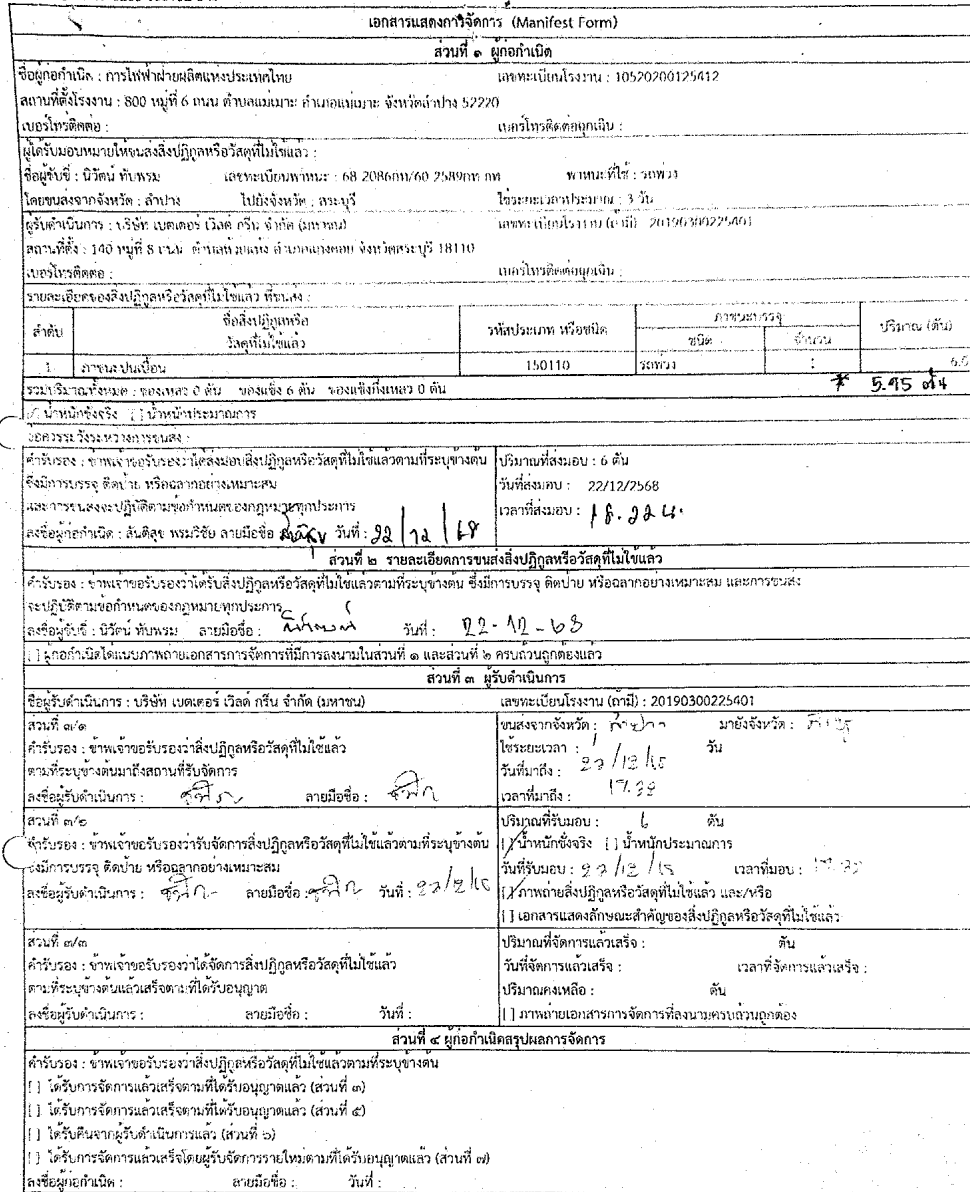 เอกสารแสดงการจัดการ (Manifest Form)
ส่วนที่ ๑ ผู้ก่อกำเนิด
ชื่อผู้ก่อกำเนิด : การไฟฟ้าฝ่ายผลิตแห่งประเทศไทย เลขทะเบียนโรงงาน : 10520200125412
สถานที่ตั้งโรงงาน : 800 หมู่ที่ 6 ถนน ตำบลแม่เมาะ อำเภอแม่เมาะ จังหวัดลำปาง 52220
เบอร์โทรติดต่อ : เบอร์โทรติดต่อฉุกเฉิน :
ผู้ได้รับมอบหมายให้ขนส่งสิ่งปฏิกูลหรือวัสดุที่ไม่ใช้แล้ว :
ชื่อผู้ขับขี่ : นิวัตน์ ทับพรม เลขทะเบียนพาหนะ : 68 2086กท/60 2589กท กท พาหนะที่ใช้ : รถพ่วง
โดยขนส่งจากจังหวัด : ลำปาง ไปยังจังหวัด : สระบุรี ใช้ระยะเวลาประมาณ : 3 วัน
ผู้รับดำเนินการ : บริษัท เบตเตอร์ เวิลด์ กรีน จำกัด (มหาชน) เลขทะเบียนโรงงาน (ถ้ามี) 20190300225401
สถานที่ตั้ง : 140 หมู่ที่ 8 ถนน ตำบลห้วยแห้ง อำเภอแก่งคอย จังหวัดสระบุรี 18110
เบอร์โทรติดต่อ : เบอร์โทรติดต่อฉุกเฉิน :
รายละเอียดของสิ่งปฏิกูลหรือวัสดุที่ไม่ใช้แล้ว ที่ขนส่ง :
ลำดับ ชื่อสิ่งปฏิกูลหรือ รหัสประเภท หรือชนิด ภาชนะบรรจุ ปริมาณ (ตัน)
วัสดุที่ไม่ใช้แล้ว ชนิด จำนวน
1 ภาชนะปนเปื้อน 150110 รถพ่วง 6.0
รวมปริมาณทั้งหมด : ของเหลว 0 ตัน ของแข็ง 6 ตัน ของแข็งกึ่งเหลว 0 ตัน * 5.95 ตัน
[/] น้ำหนักชั่งจริง [ ] น้ำหนักประมาณการ
ข้อควรระวังระหว่างการขนส่ง :
คำรับรอง : ข้าพเจ้าขอรับรองว่าได้ส่งมอบสิ่งปฏิกูลหรือวัสดุที่ไม่ใช้แล้วตามที่ระบุข้างต้น ปริมาณที่ส่งมอบ : 6 ตัน
ซึ่งมีการบรรจุ ติดป้าย หรือฉลากอย่างเหมาะสม วันที่ส่งมอบ : 22/12/2568
และการขนส่งจะปฏิบัติตามข้อกำหนดของกฎหมายทุกประการ เวลาที่ส่งมอบ : 18.22 น.
ลงชื่อผู้ก่อกำเนิด : สันติสุข พรมวิชัย ลายมือชื่อ สันติสุข วันที่ : 22/12/68
ส่วนที่ ๒ รายละเอียดการขนส่งสิ่งปฏิกูลหรือวัสดุที่ไม่ใช้แล้ว
คำรับรอง : ข้าพเจ้าขอรับรองว่าได้รับสิ่งปฏิกูลหรือวัสดุที่ไม่ใช้แล้วตามที่ระบุข้างต้น ซึ่งมีการบรรจุ ติดป้าย หรือฉลากอย่างเหมาะสม และการขนส่ง
จะปฏิบัติตามข้อกำหนดของกฎหมายทุกประการ
ลงชื่อผู้ขับขี่ : นิวัตน์ ทับพรม ลายมือชื่อ : วันที่ : 22-12-68
[ ] ผู้ก่อกำเนิดได้แนบภาพถ่ายเอกสารการจัดการที่มีการลงนามในส่วนที่ ๑ และส่วนที่ ๒ ครบถ้วนถูกต้องแล้ว
ส่วนที่ ๓ ผู้รับดำเนินการ
ชื่อผู้รับดำเนินการ : บริษัท เบตเตอร์ เวิลด์ กรีน จำกัด (มหาชน) เลขทะเบียนโรงงาน (ถ้ามี) : 20190300225401
ส่วนที่ ๓/๑ ขนส่งจากจังหวัด : ลำปาง มายังจังหวัด :
คำรับรอง : ข้าพเจ้าขอรับรองว่าสิ่งปฏิกูลหรือวัสดุที่ไม่ใช้แล้ว ใช้ระยะเวลา : 1 วัน
ตามที่ระบุข้างต้นมาถึงสถานที่รับจัดการ วันที่มาถึง :
ลงชื่อผู้รับดำเนินการ : ลายมือชื่อ : เวลาที่มาถึง :
ส่วนที่ ๓/๒ ปริมาณที่รับมอบ : 6 ตัน
คำรับรอง : ข้าพเจ้าขอรับรองว่ารับจัดการสิ่งปฏิกูลหรือวัสดุที่ไม่ใช้แล้วตามที่ระบุข้างต้น [/] น้ำหนักชั่งจริง [ ] น้ำหนักประมาณการ
ซึ่งมีการบรรจุ ติดป้าย หรือฉลากอย่างเหมาะสม วันที่รับมอบ : เวลาที่มอบ :
ลงชื่อผู้รับดำเนินการ : ลายมือชื่อ : วันที่ : [/] ภาพถ่ายสิ่งปฏิกูลหรือวัสดุที่ไม่ใช้แล้ว และ/หรือ
[ ] เอกสารแสดงลักษณะสำคัญของสิ่งปฏิกูลหรือวัสดุที่ไม่ใช้แล้ว
ส่วนที่ ๓/๓ ปริมาณที่จัดการแล้วเสร็จ : ตัน
คำรับรอง : ข้าพเจ้าขอรับรองว่าได้จัดการสิ่งปฏิกูลหรือวัสดุที่ไม่ใช้แล้ว วันที่จัดการแล้วเสร็จ : เวลาที่จัดการแล้วเสร็จ :
ตามที่ระบุข้างต้นแล้วเสร็จตามที่ได้รับอนุญาต ปริมาณคงเหลือ : ตัน
ลงชื่อผู้รับดำเนินการ : ลายมือชื่อ : วันที่ : [ ] ภาพถ่ายเอกสารการจัดการที่ลงนามครบถ้วนถูกต้อง
ส่วนที่ ๔ ผู้ก่อกำเนิดสรุปผลการจัดการ
คำรับรอง : ข้าพเจ้าขอรับรองว่าสิ่งปฏิกูลหรือวัสดุที่ไม่ใช้แล้วตามที่ระบุข้างต้น
[ ] ได้รับการจัดการแล้วเสร็จตามที่ได้รับอนุญาตแล้ว (ส่วนที่ ๓)
[ ] ได้รับการจัดการแล้วเสร็จตามที่ได้รับอนุญาตแล้ว (ส่วนที่ ๕)
[ ] ได้รับคืนจากผู้รับดำเนินการแล้ว (ส่วนที่ ๖)
[ ] ได้รับการจัดการแล้วเสร็จโดยผู้รับจัดการรายใหม่ตามที่ได้รับอนุญาตแล้ว (ส่วนที่ ๗)
ลงชื่อผู้ก่อกำเนิด : ลายมือชื่อ : วันที่ :